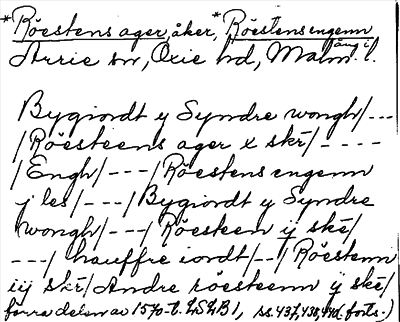 *Röestens ager, åker, *Röestens engenn
äng i
Arrie sn, Oxie hd, Malm. l.
Bygiordt y Syndre wongh/---
/Röesteens ager x skr/----
/Engh/---/Röestens engenn
y les/---/Bygiordt y Syndre
wongh/---/Röesteen ij ske/
---/hauffre iordt/--/Röestenn
iij skr/Andre röesteenn ij ske/
förra delen av 1570-t. LSLB1, ss. 437, 438, 440. (forts.)